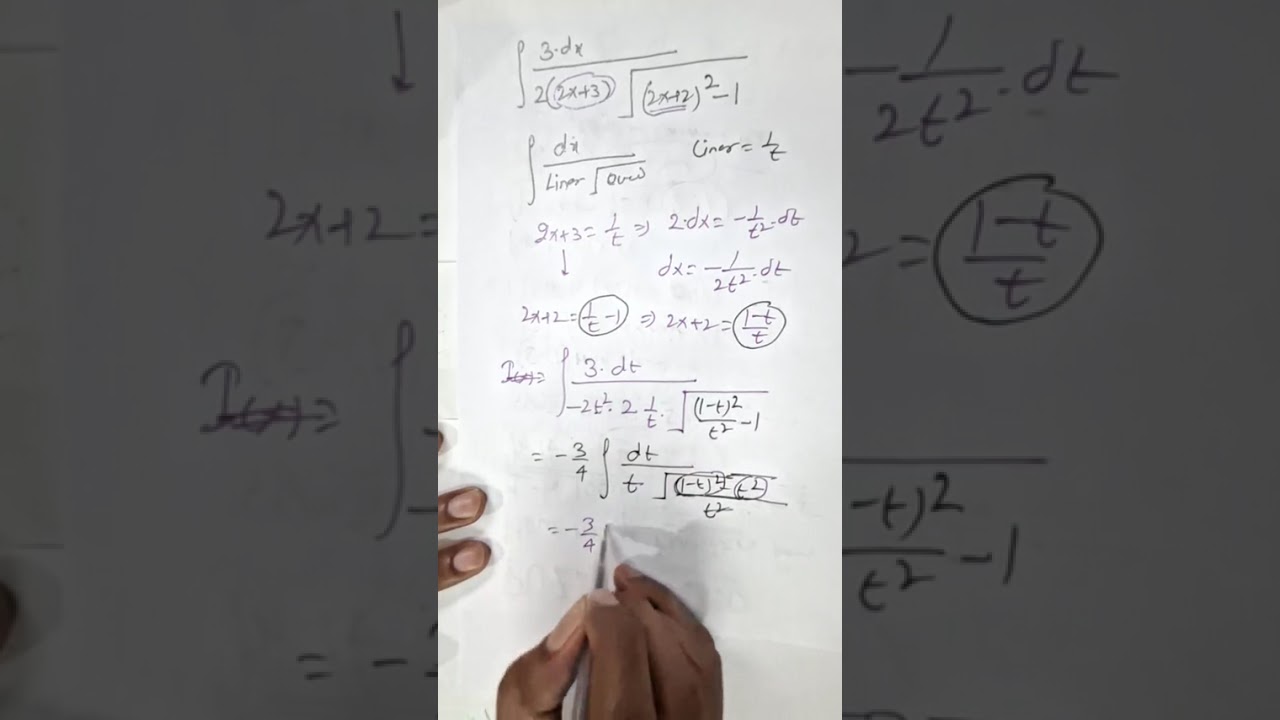 ∫ 3·dx / 2(2x+3) √(2x+2)²-1
∫ dx / Liner √Quad    Liner = 1/t
2x+3 = 1/t ⇒ 2·dx = -1/t²·dt
↓ dx = -1/2t²·dt
2x+2 = 1/t -1 ⇒ 2x+2 = 1-t/t
I(x) = ∫ 3·dt / -2t²· 2 1/t· √(1-t)²/t² -1
= -3/4 ∫ dt / t √(1-t)²-t² / t²
= -3/4